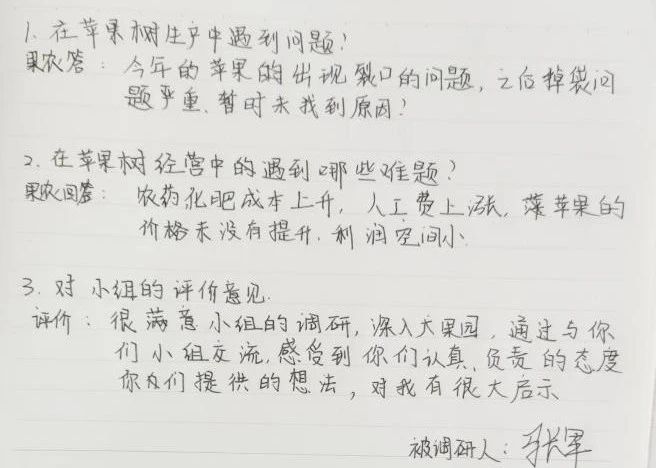 1. 在苹果树生产中遇到问题?
果农答: 今年的苹果的出现裂口的问题, 之后掉袋问
题严重、暂时未找到原因?
2. 在苹果树经营中的遇到哪些难题?
果农回答: 农药化肥成本上升, 人工费上涨, 苹果的
价格未没有提升. 利润空间小.
3. 对小组的评价意见.
评价: 很满意小组的调研, 深入大果园, 通过与你
们小组交流, 感受到你们认真、负责的态度
你们提供的想法, 对我有很大启示
被调研人: 张军